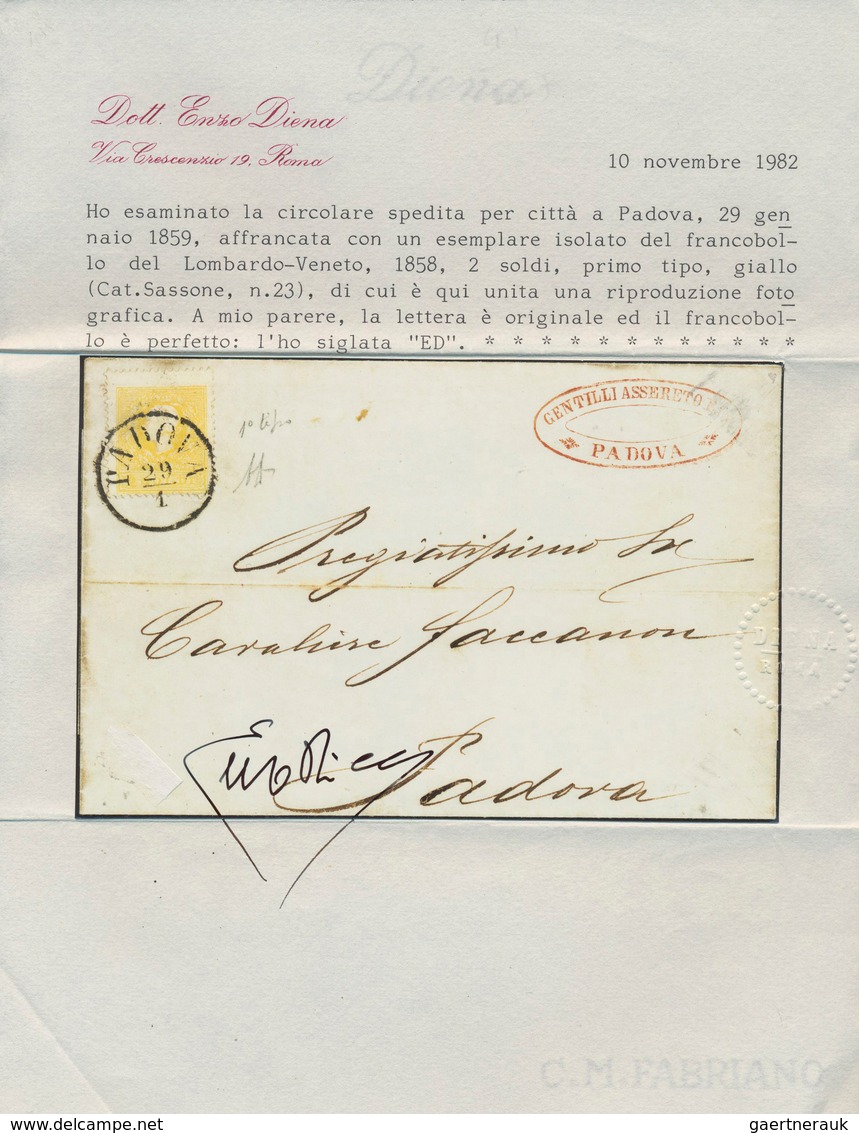 Diena
Dott. Enzo Diena
Via Crescenzio 19, Roma
10 novembre 1982
Ho esaminato la circolare spedita per città a Padova, 29 gen
naio 1859, affrancata con un esemplare isolato del francobol-
lo del Lombardo-Veneto, 1858, 2 soldi, primo tipo, giallo
(Cat.Sassone, n.23), di cui è qui unita una riproduzione foto
grafica. A mio parere, la lettera è originale ed il francobol-
lo è perfetto: l'ho siglata "ED". * * * * * * * * * * * * *
PADOVA
29
1
1° tipo
GENTILLI ASSERETO
PADOVA
Pregiatissimo
Cavaliere Faccanon
DIENA
ROMA
Padova
C.M.FABRIANO
gaertnerauk